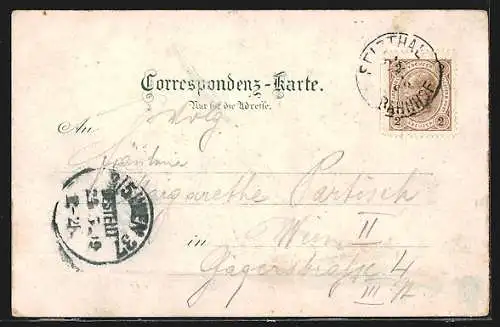 SELZTHAL
BAHNHOF
2 2
Correspondenz-Karte.
Nur für die Adresse.
An
Fräulein
Margarethe
in Wien II
Jägerstraße 4
WIEN
BESTELLT